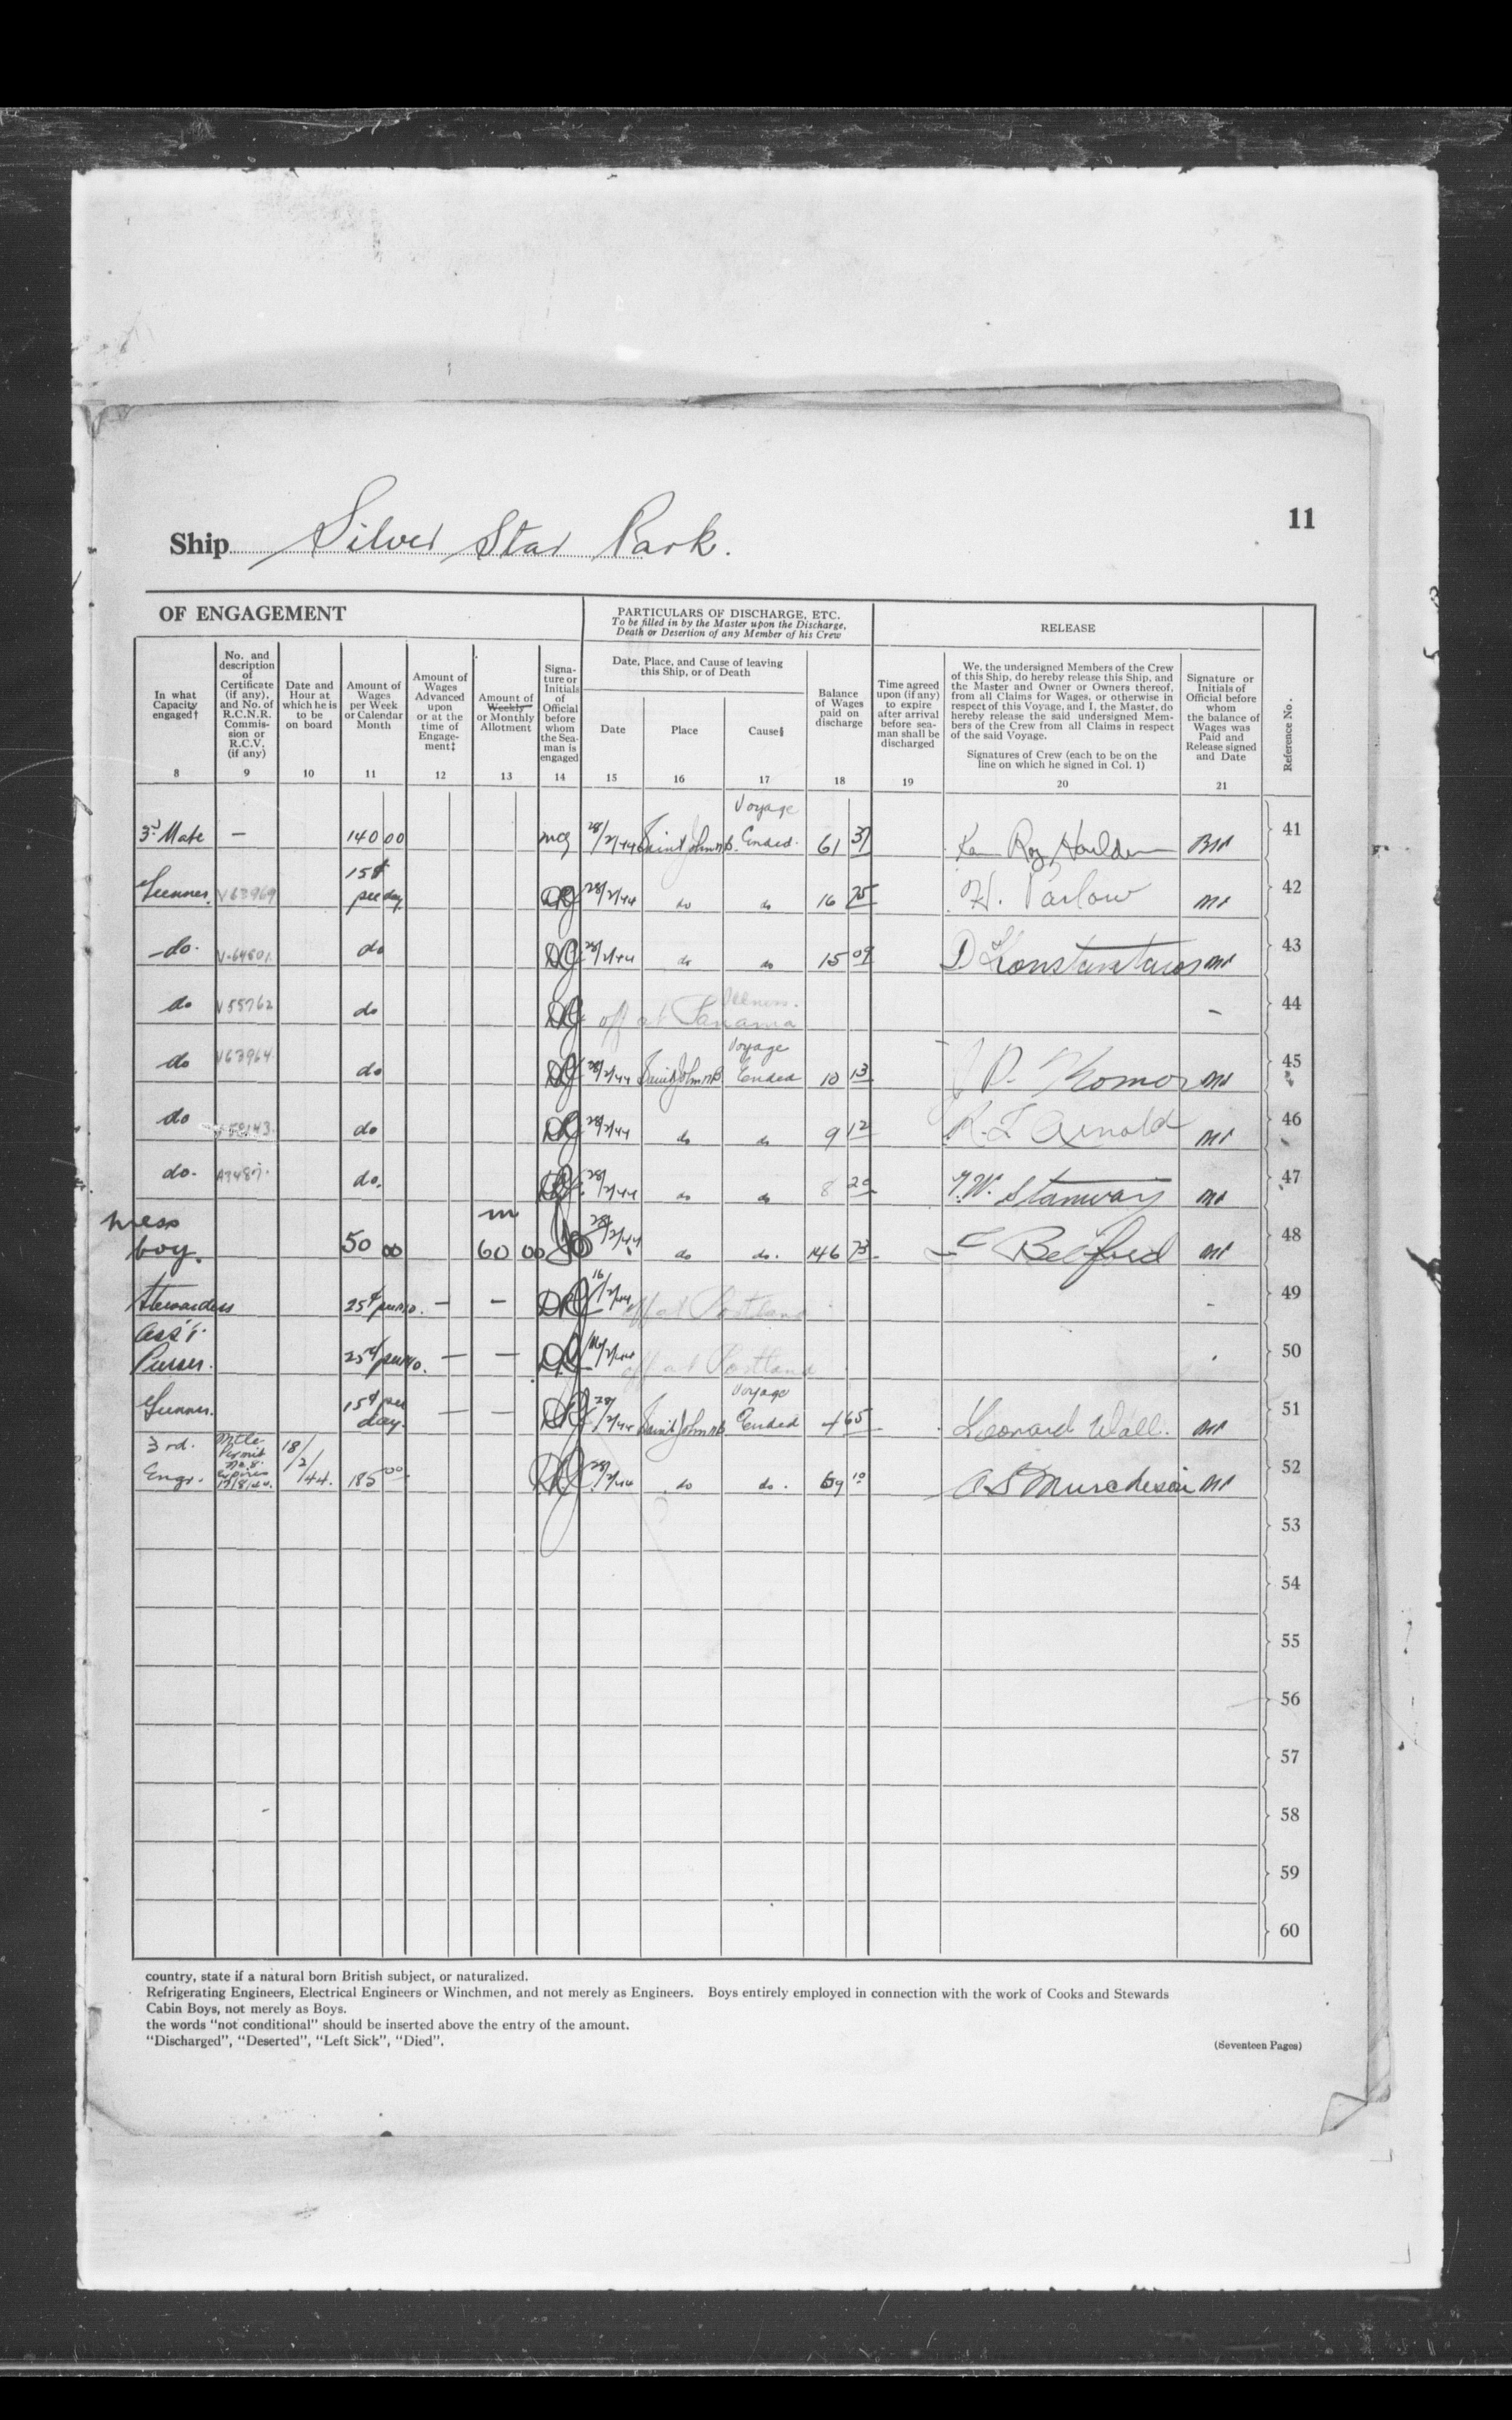 11
Ship Silver Star Park.
OF ENGAGEMENT
PARTICULARS OF DISCHARGE, ETC.
To be filled in by the Master upon the Discharge,
Death or Desertion of any Member of his Crew
RELEASE
In what
Capacity
engaged†
8
No. and
description
of
Certificate
(if any),
and No. of
R.C.N.R.
Commis-
sion or
R.C.V.
(if any)
9
Date and
Hour at
which he is
to be
on board
10
Amount of
Wages
per Week
or Calendar
Month
11
Amount of
Wages
Advanced
upon
or at the
time of
Engage-
ment‡
12
Amount of
Weekly
or Monthly
Allotment
13
Signa-
ture or
Initials
of
Official
before
whom
the Sea-
man is
engaged
14
Date, Place, and Cause of leaving
this Ship, or of Death
Date
15
Place
16
Cause§
17
Balance
of Wages
paid on
discharge
18
Time agreed
upon (if any)
to expire
after arrival
before sea-
man shall be
discharged
19
We, the undersigned Members of the Crew
of this Ship, do hereby release this Ship, and
the Master and Owner or Owners thereof,
from all Claims for Wages, or otherwise in
respect of this Voyage, and I, the Master, do
hereby release the said undersigned Mem-
bers of the Crew from all Claims in respect
of the said Voyage.
Signatures of Crew (each to be on the
line on which he signed in Col. 1)
20
Signature or
Initials of
Official before
whom
the balance of
Wages was
Paid and
Release signed
and Date
21
Reference No.
3rd Mate — 140 00 28/2/44 Saint John NB. Voyage Ended. 61 37 Roy Houlden 41
Gunner. V63969 15¢ per day 28/2/44 do do 16 75 H. Parlow 42
do. V-64801 do 28/2/44 do do 15 09 D Konstantaros 43
do V55762 do off at Panama Illness. – 44
do V63964 do 28/2/44 Saint John NB Voyage Ended 10 13 45
do do 28/2/44 do do 9 12 Arnold 46
do. do. 28/2/44 do do 8 20 Stanway 47
mess boy. 50 00 m 60 00 28/2/44 do do. 146 73 Belford 48
Stewardess 25¢ per mo. — — 16/2/44 off at Portland 49
Ass't. Purser. 25¢ per mo. — — 16/2/44 off at Portland 50
Gunner. 15¢ per day. — — 28/2/44 Saint John NB Voyage Ended 4 65 Leonard Wall. 51
3rd. Engr. 18/2/44. 185 00 28/2/44 do do. 69 10 Murchison 52
53
54
55
56
57
58
59
60
country, state if a natural born British subject, or naturalized.
Refrigerating Engineers, Electrical Engineers or Winchmen, and not merely as Engineers. Boys entirely employed in connection with the work of Cooks and Stewards
Cabin Boys, not merely as Boys.
the words "not conditional" should be inserted above the entry of the amount.
"Discharged", "Deserted", "Left Sick", "Died".
(Seventeen Pages)